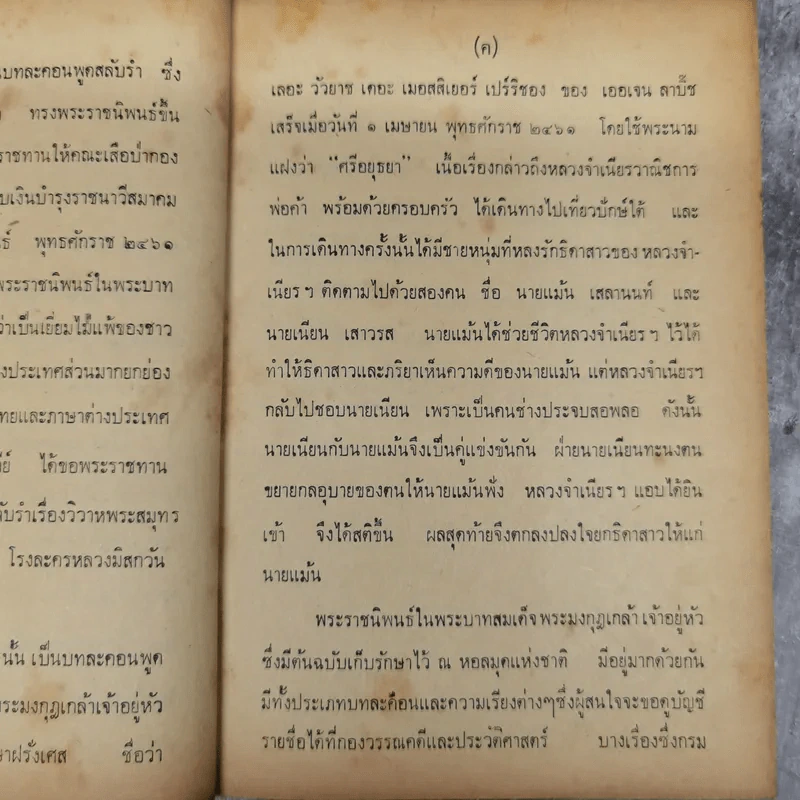 นบทละคอนพูดสลับรำ ซึ่ง
ทรงพระราชนิพนธ์ขึ้น
ราชทานให้คณะเสือป่ากอง
บเงินบำรุงราชนาวีสมาคม
ธ์ พุทธศักราช ๒๔๖๑
พระราชนิพนธ์ในพระบาท
ว่าเป็นเยี่ยมไม่แพ้ของชาว
งประเทศส่วนมากยกย่อง
ทยและภาษาต่างประเทศ
ย์ ได้ขอพระราชทาน
ับรำเรื่องวิวาหพระสมุทร
โรงละครหลวงมิสกวัน
นั้น เป็นบทละคอนพูด
ระมงกุฎเกล้าเจ้าอยู่หัว
าฝรั่งเศส ชื่อว่า
(ค)
เลอะ วัวยาช เดอะ เมอสสิเยอร์ เปร์ริชอง ของ เออเจน ลาบิ๊ช
เสร็จเมื่อวันที่ ๑ เมษายน พุทธศักราช ๒๔๖๑ โดยใช้พระนาม
แฝงว่า "ศรีอยุธยา" เนื้อเรื่องกล่าวถึงหลวงจำเนียรวาณิชการ
พ่อค้า พร้อมด้วยครอบครัว ได้เดินทางไปเที่ยวปักษ์ใต้ และ
ในการเดินทางครั้งนั้นได้มีชายหนุ่มที่หลงรักธิดาสาวของ หลวงจำ-
เนียร ฯ ติดตามไปด้วยสองคน ชื่อ นายแม้น เสลานนท์ และ
นายเนียน เสาวรส นายแม้นได้ช่วยชีวิตหลวงจำเนียร ฯ ไว้ได้
ทำให้ธิดาสาวและภริยาเห็นความดีของนายแม้น แต่หลวงจำเนียรฯ
กลับไปชอบนายเนียน เพราะเป็นคนช่างประจบสอพลอ ดังนั้น
นายเนียนกับนายแม้นจึงเป็นคู่แข่งขันกัน ฝ่ายนายเนียนทะนงตน
ขยายกลอุบายของตนให้นายแม้นฟัง หลวงจำเนียร ฯ แอบได้ยิน
เข้า จึงได้สติขึ้น ผลสุดท้ายจึงตกลงปลงใจยกธิดาสาวให้แก่
นายแม้น
พระราชนิพนธ์ในพระบาทสมเด็จ พระมงกุฎเกล้า เจ้าอยู่หัว
ซึ่งมีต้นฉบับเก็บรักษาไว้ ณ หอสมุดแห่งชาติ มีอยู่มากด้วยกัน
มีทั้งประเภทบทละคอนและความเรียงต่างๆซึ่งผู้สนใจจะขอดูบัญชี
รายชื่อได้ที่กองวรรณคดีและประวัติศาสตร์ บางเรื่องซึ่งกรม